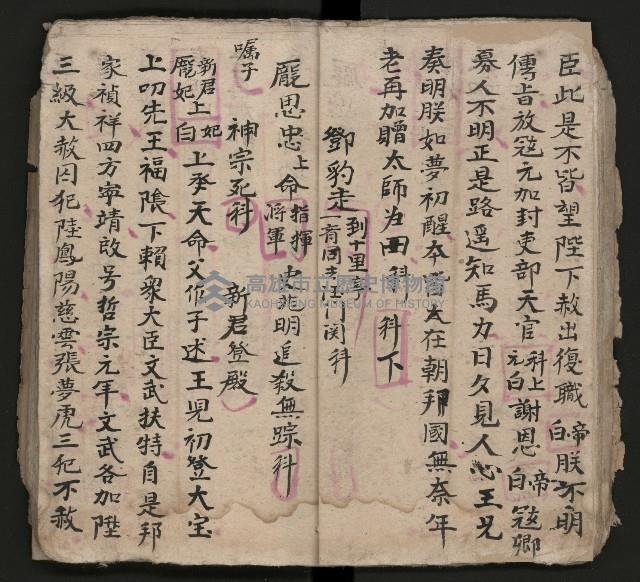 臣此是不皆望陛下赦出復職 帝白 朕不明
傳旨放寇元加封吏部天官 科上元白 謝恩 帝白 寇卿
募人不明正是路遥知馬力日久見人心王兄
奏明朕如夢初醒 太在朝邦國無奈年
老再加贈太師为田科 科下
鄧豹走 到十里 科
龎思忠上命 指揮將軍 明追殺無踪科
嘱子 神宗死科 新君登殿
新君上妃龎妃白 上丞天命父作子述王児初登大宝
上叨先王福隂下賴衆大臣文武扶特自是邦
家禎祥四方寕靖改号哲宗元年文武各加陞
三級大赦囚犯陸鳳陽慈雲張夢虎三犯不赦
高雄市立歷史博物館
KAOHSIUNG MUSEUM OF HISTORY